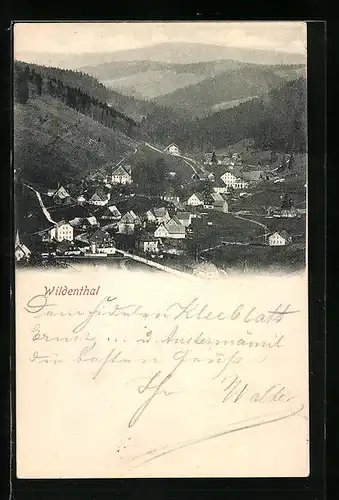 Wildenthal
Dem fidelen Kleeblatt
Ernst ... u
die besten Grüße
Ihr Walter